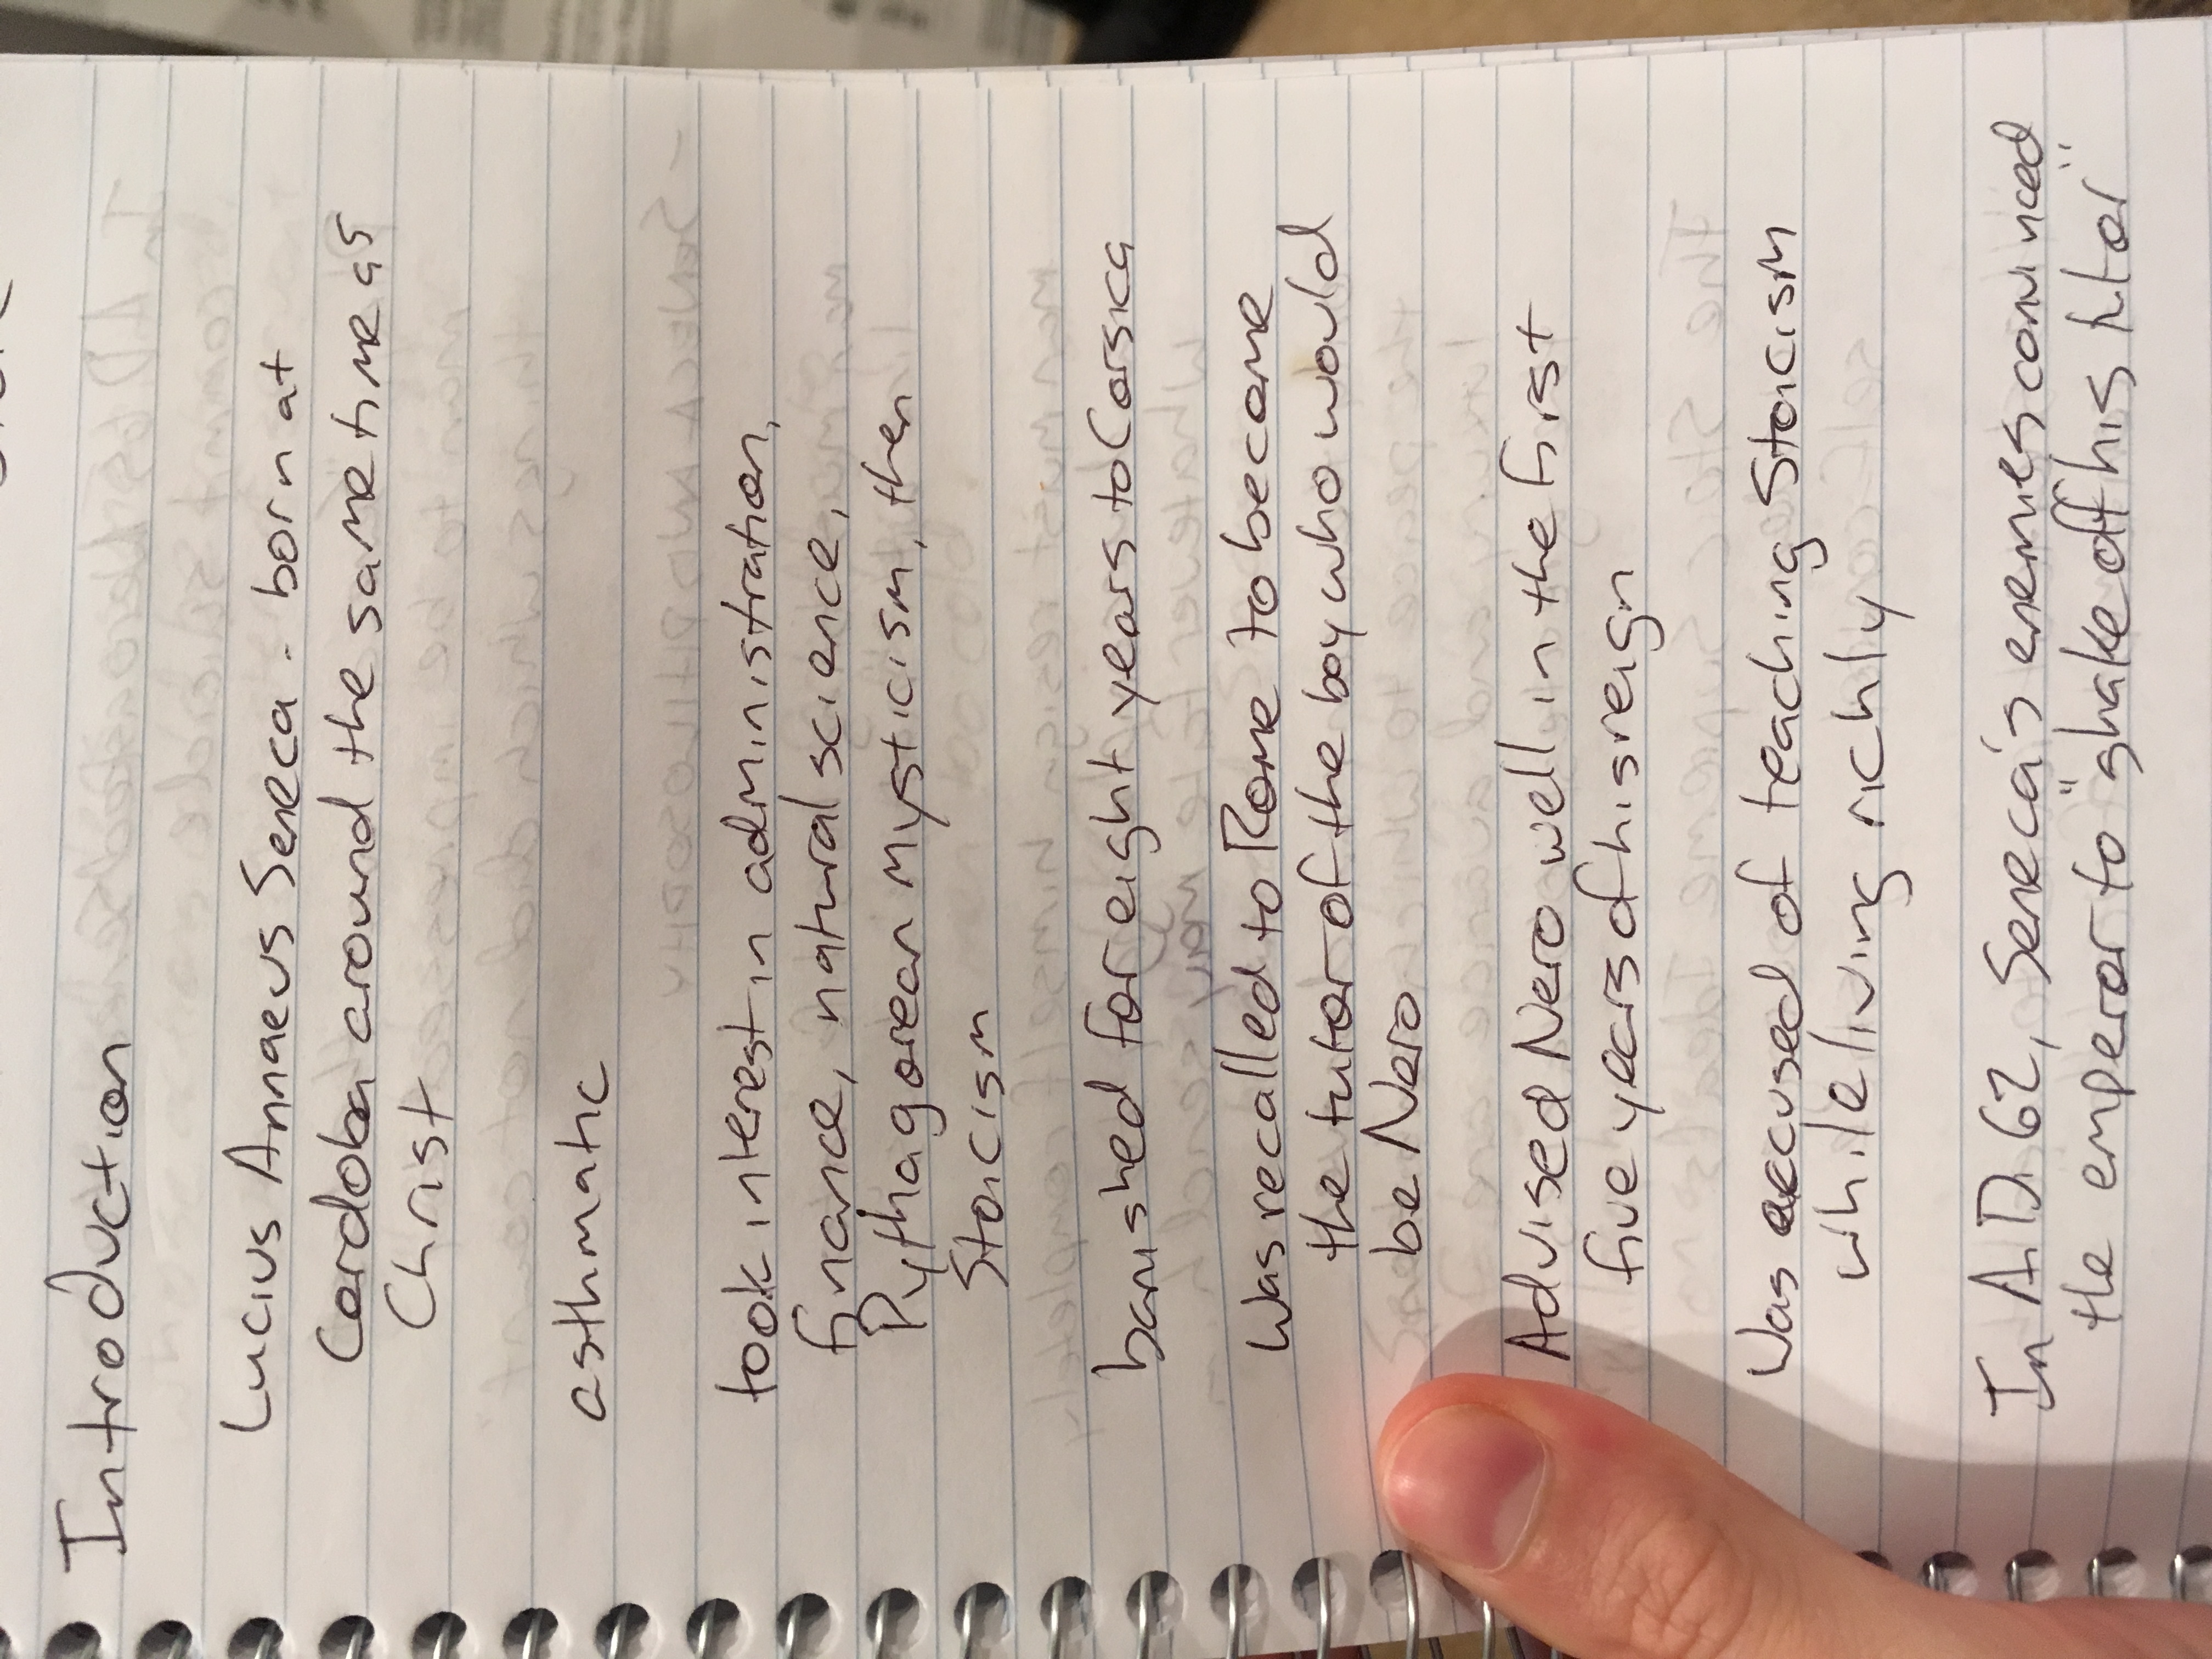 Introduction
Lucius Annaeus Seneca - born at
Cordoba around the same time as
Christ
asthmatic
took interest in administration,
finance, natural science,
Pythagorean Mysticism, then
Stoicism
banished for eight years to Corsica
Was recalled to Rome to become
the tutor of the boy who would
be Nero
Advised Nero well in the first
five years of his reign
Was accused of teaching Stoicism
while living richly
In A.D. 62, Seneca's enemies convinced
the emperor to "shake off his tutor"